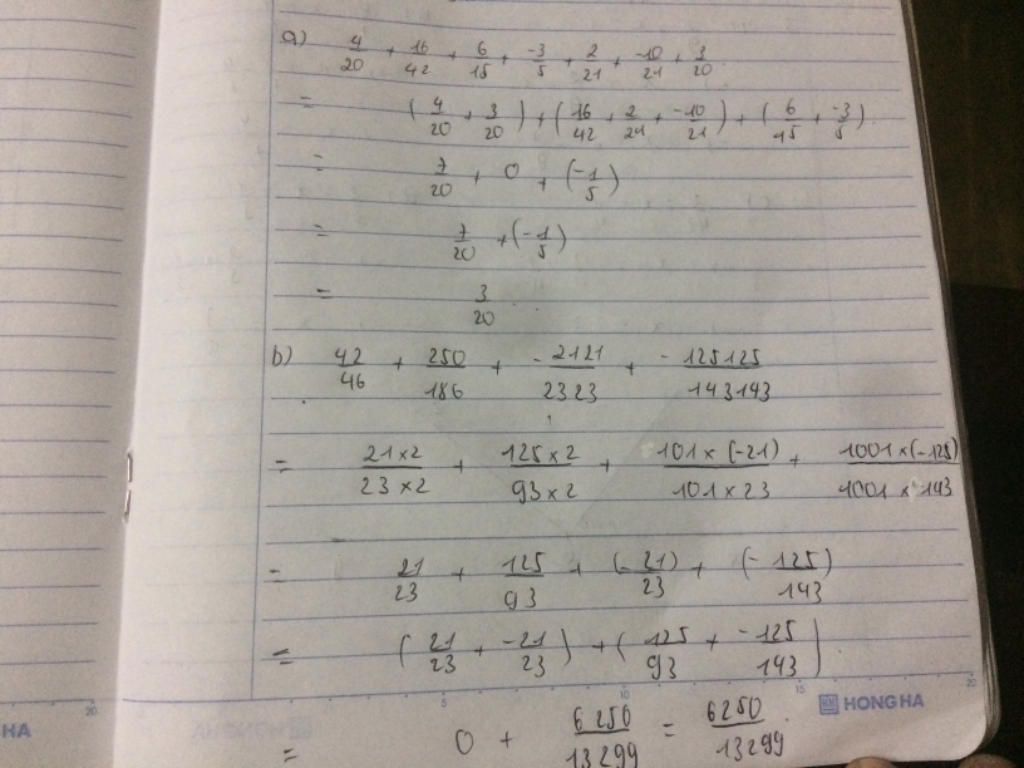 a) 4/20 + 16/42 + 6/15 + -3/5 + 2/21 + -10/21 + 3/20
= (4/20 + 3/20) + (16/42 + 2/21 + -10/21) + (6/15 + -3/5)
= 7/20 + 0 + (-1/5)
= 7/20 + (-1/5)
= 3/20
b) 42/46 + 250/186 + -2121/2323 + -125125/143143
= 21×2/23×2 + 125×2/93×2 + 101×(-21)/101×23 + 1001×(-125)/1001×143
= 21/23 + 125/93 + (-21/23) + (-125/143)
= (21/23 + -21/23) + (125/93 + -125/143)
= 0 + 6250/13299 = 6250/13299
5 10 15 20
HONG HA
20
HA